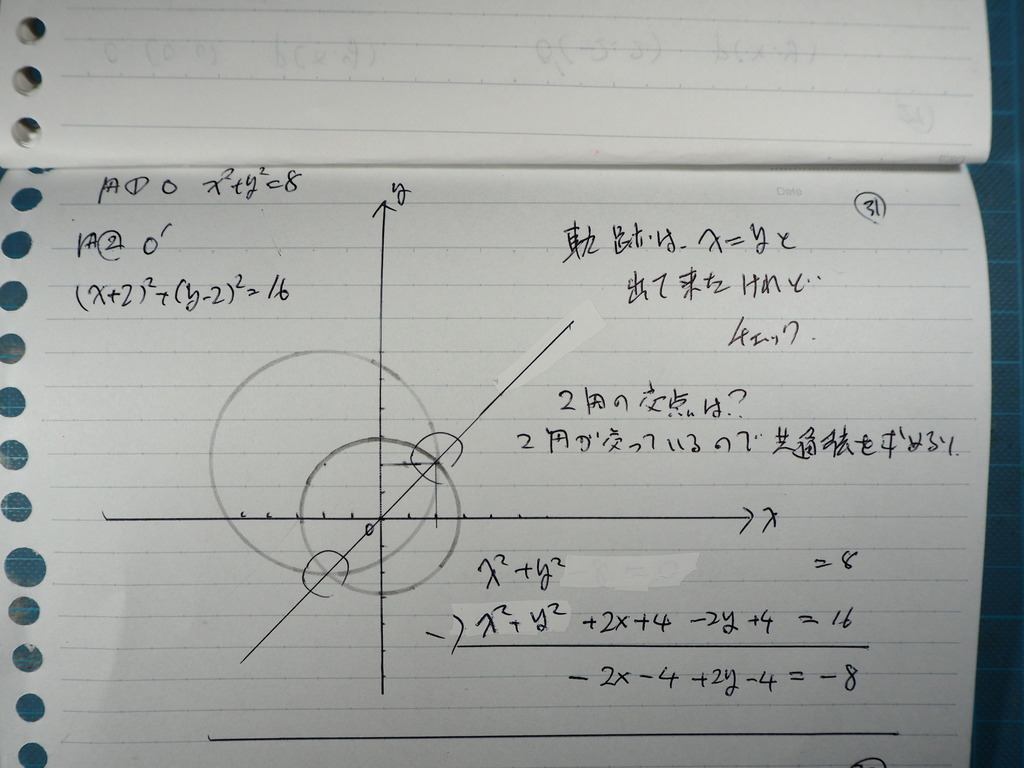 円① O x²+y²=8
円② O′
(x+2)²+(y-2)²=16
y
Date
㉛
軌跡は、x=yと
出て来たけれど…
チェック.
2円の交点は?
2円が交っているので共通弦を求める.
O
x
x²+y² =8
-) x²+y² +2x+4 -2y+4 =16
-2x-4+2y-4=-8